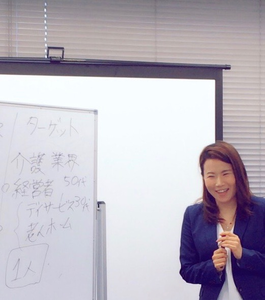 ターゲット
介護業界
経営者 50代
デイサービス
老人ホーム
1人